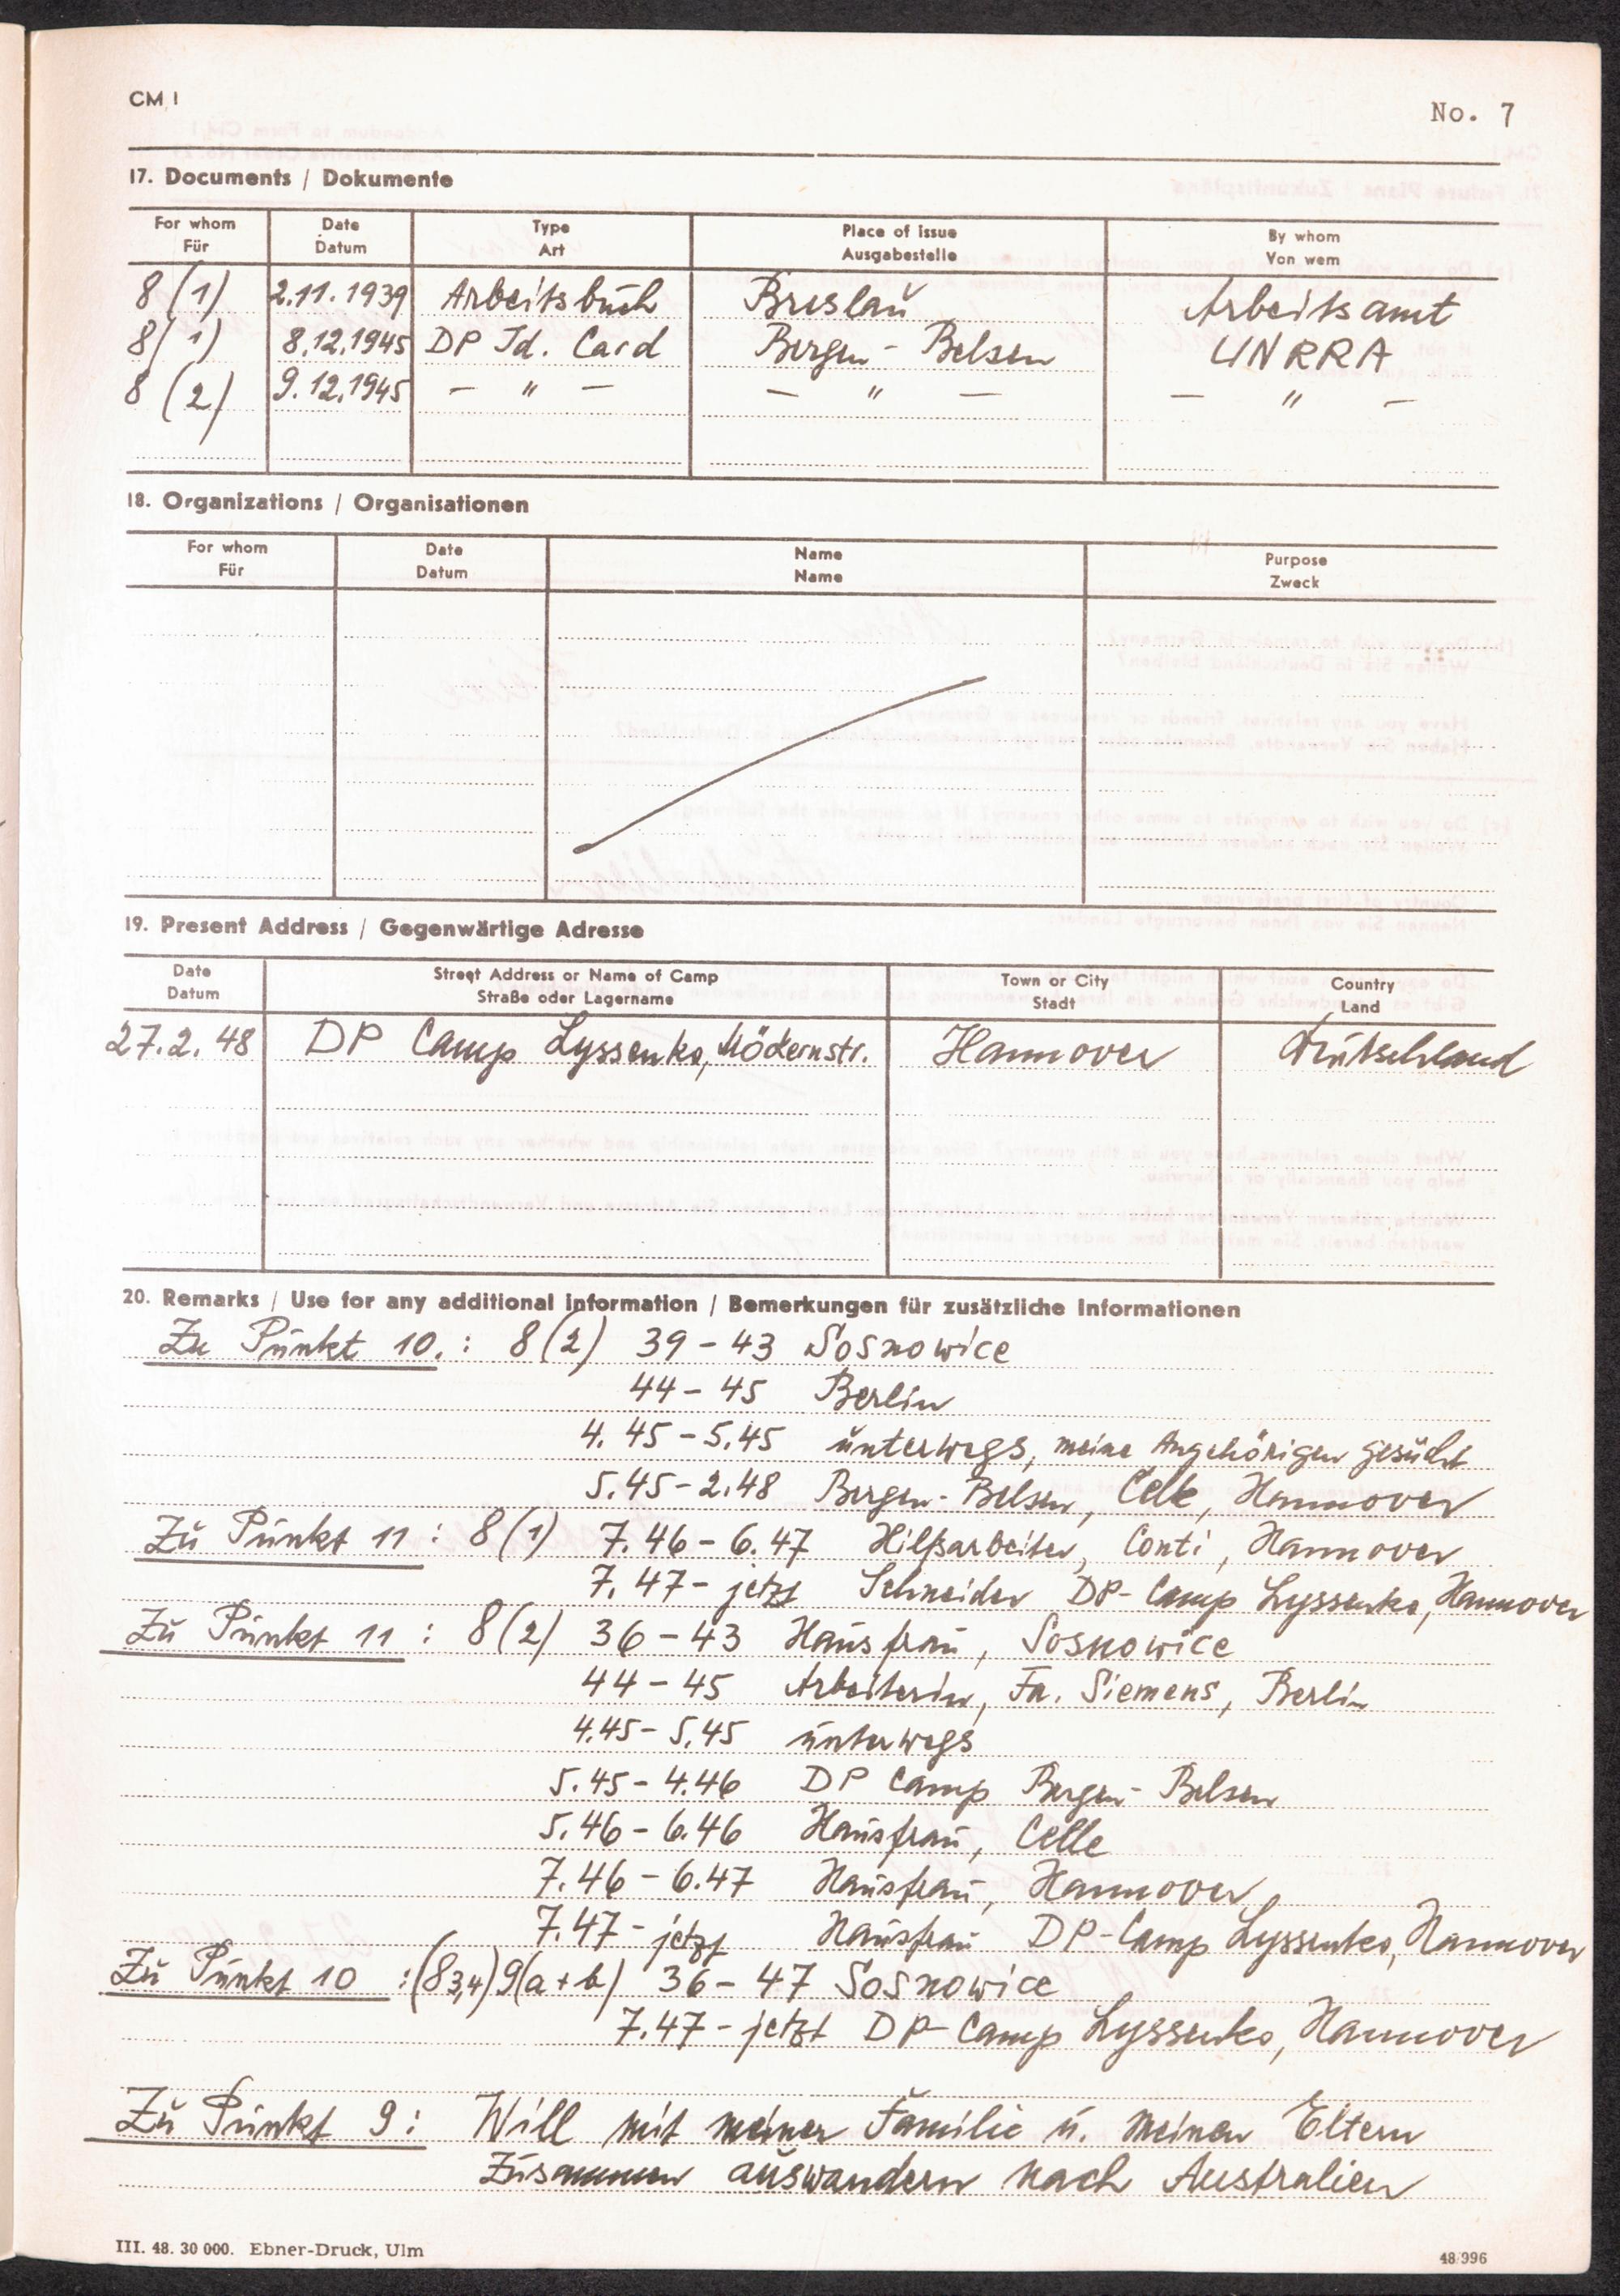 CM 1
No. 7
17. Documents / Dokumente
For whom Date Type Place of issue By whom
Für Datum Art Ausgabestelle Von wem
8 (1) 2.11.1939 Arbeitsbuch Breslau Arbeitsamt
8 (1) 8.12.1945 DP Id. Card Bergen - Belsen UNRRA
8 (2) 9.12.1945 — " — — " — — " —
18. Organizations / Organisationen
For whom Date Name Purpose
Für Datum Name Zweck
19. Present Address / Gegenwärtige Adresse
Date Street Address or Name of Camp Town or City Country
Datum Straße oder Lagername Stadt Land
27.2.48 DP Camp Lyssenko, Möckernstr. Hannover Deutschland
20. Remarks / Use for any additional information / Bemerkungen für zusätzliche Informationen
Zu Punkt 10. : 8 (2) 39 - 43 Sosnowice
44 - 45 Berlin
4.45 - 5.45 unterwegs, meine Angehörigen gesucht
5.45 - 2.48 Bergen - Belsen, Celle, Hannover
Zu Punkt 11 : 8 (1) 7.46 - 6.47 Hilfsarbeiter, Conti, Hannover
7.47 - jetzt Schneider DP - Camp Lyssenko, Hannover
Zu Punkt 11 : 8 (2) 36 - 43 Hausfrau, Sosnowice
44 - 45 Arbeiterin, Fa. Siemens, Berlin
4.45 - 5.45 unterwegs
5.45 - 4.46 DP Camp Bergen - Belsen
5.46 - 6.46 Hausfrau, Celle
7.46 - 6.47 Hausfrau, Hannover
7.47 - jetzt Hausfrau DP - Camp Lyssenko, Hannover
Zu Punkt 10 : (8 3,4) 9 (a + b) 36 - 47 Sosnowice
7.47 - jetzt DP - Camp Lyssenko, Hannover
Zu Punkt 9 : Will mit meiner Familie u. meinen Eltern
zusammen auswandern nach Australien
III. 48. 30 000. Ebner-Druck, Ulm
48/996